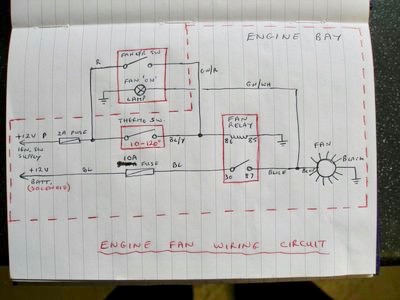 ENGINE BAY
FAN O/R SW.
R
FAN 'ON'
LAMP
GN/R
GN/WH
THERMO SW.
FAN
RELAY
+12V P
IGN. SW
SUPPLY
2A FUSE
110-120°
BL/Y
86
85
FAN
BLACK
+12V
BL
10A
FUSE
BL
30
87
BLUE
BATT.
(SOLENOID)
ENGINE FAN WIRING CIRCUIT